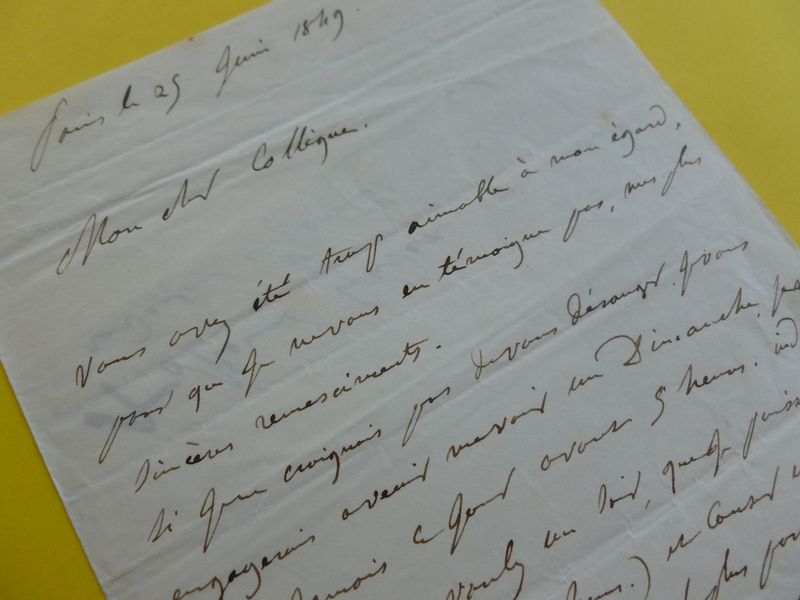 Paris le 25 Juin 1849.
Mon cher Collègue.
vous avez été trop aimable à mon égard,
pour que je ne vous en témoigne pas, mes plus
sincères remerciments.
Si je ne croignais pas de vous déranger je vous
engagerais a venir me voir un Dimanche,
jamais ce jour avant 5 heures.
voulez un soir, que je puisse
heures.) et causer
plus